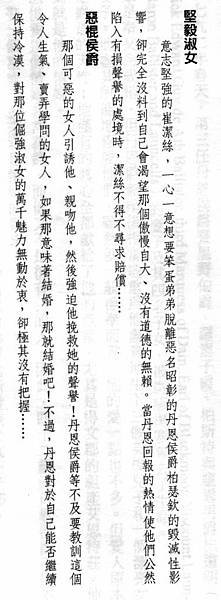 堅毅淑女
意志堅強的崔潔絲，一心一意想要笨蛋弟弟脫離惡名昭彰的丹恩侯爵柏瑟欽的毀滅性影
響，卻完全沒料到自己會渴望那個傲慢自大、沒有道德的無賴。當丹恩回報的熱情使他們公然
陷入有損聲譽的處境時，潔絲不得不尋求賠償……
惡棍侯爵
那個可惡的女人引誘他、親吻他，然後強迫他挽救她的聲譽！丹恩侯爵等不及要教訓這個
令人生氣、賣弄學問的女人，如果那意味著結婚，那就結婚吧！不過，丹恩對於自己能否繼續
保持冷漠，對那位倔強淑女的萬千魅力無動於衷，卻極其沒有把握……